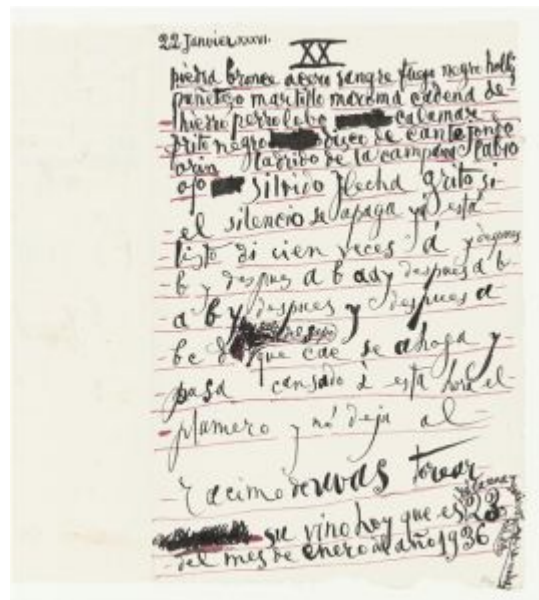 22 Janvier XXXVI.
XX
piedra bronce acero sangre fuego negro
puñetazo martillo maroma cadena de
hierro perro lobo calamar
grito negro disco de cante jondo
orin ladrido de la campana labio
ojo silvido flecha grito si
el silencio se apaga y está
listo di cien veces á y
b y despues a b a d y despues a b
a b y despues y despues a
b c que cae se ahoga y
pasa cansado á esta hora el
plumero y no deja al
racimo de uvas torear
su vino hoy que es 23
del mes de enero del año 1936